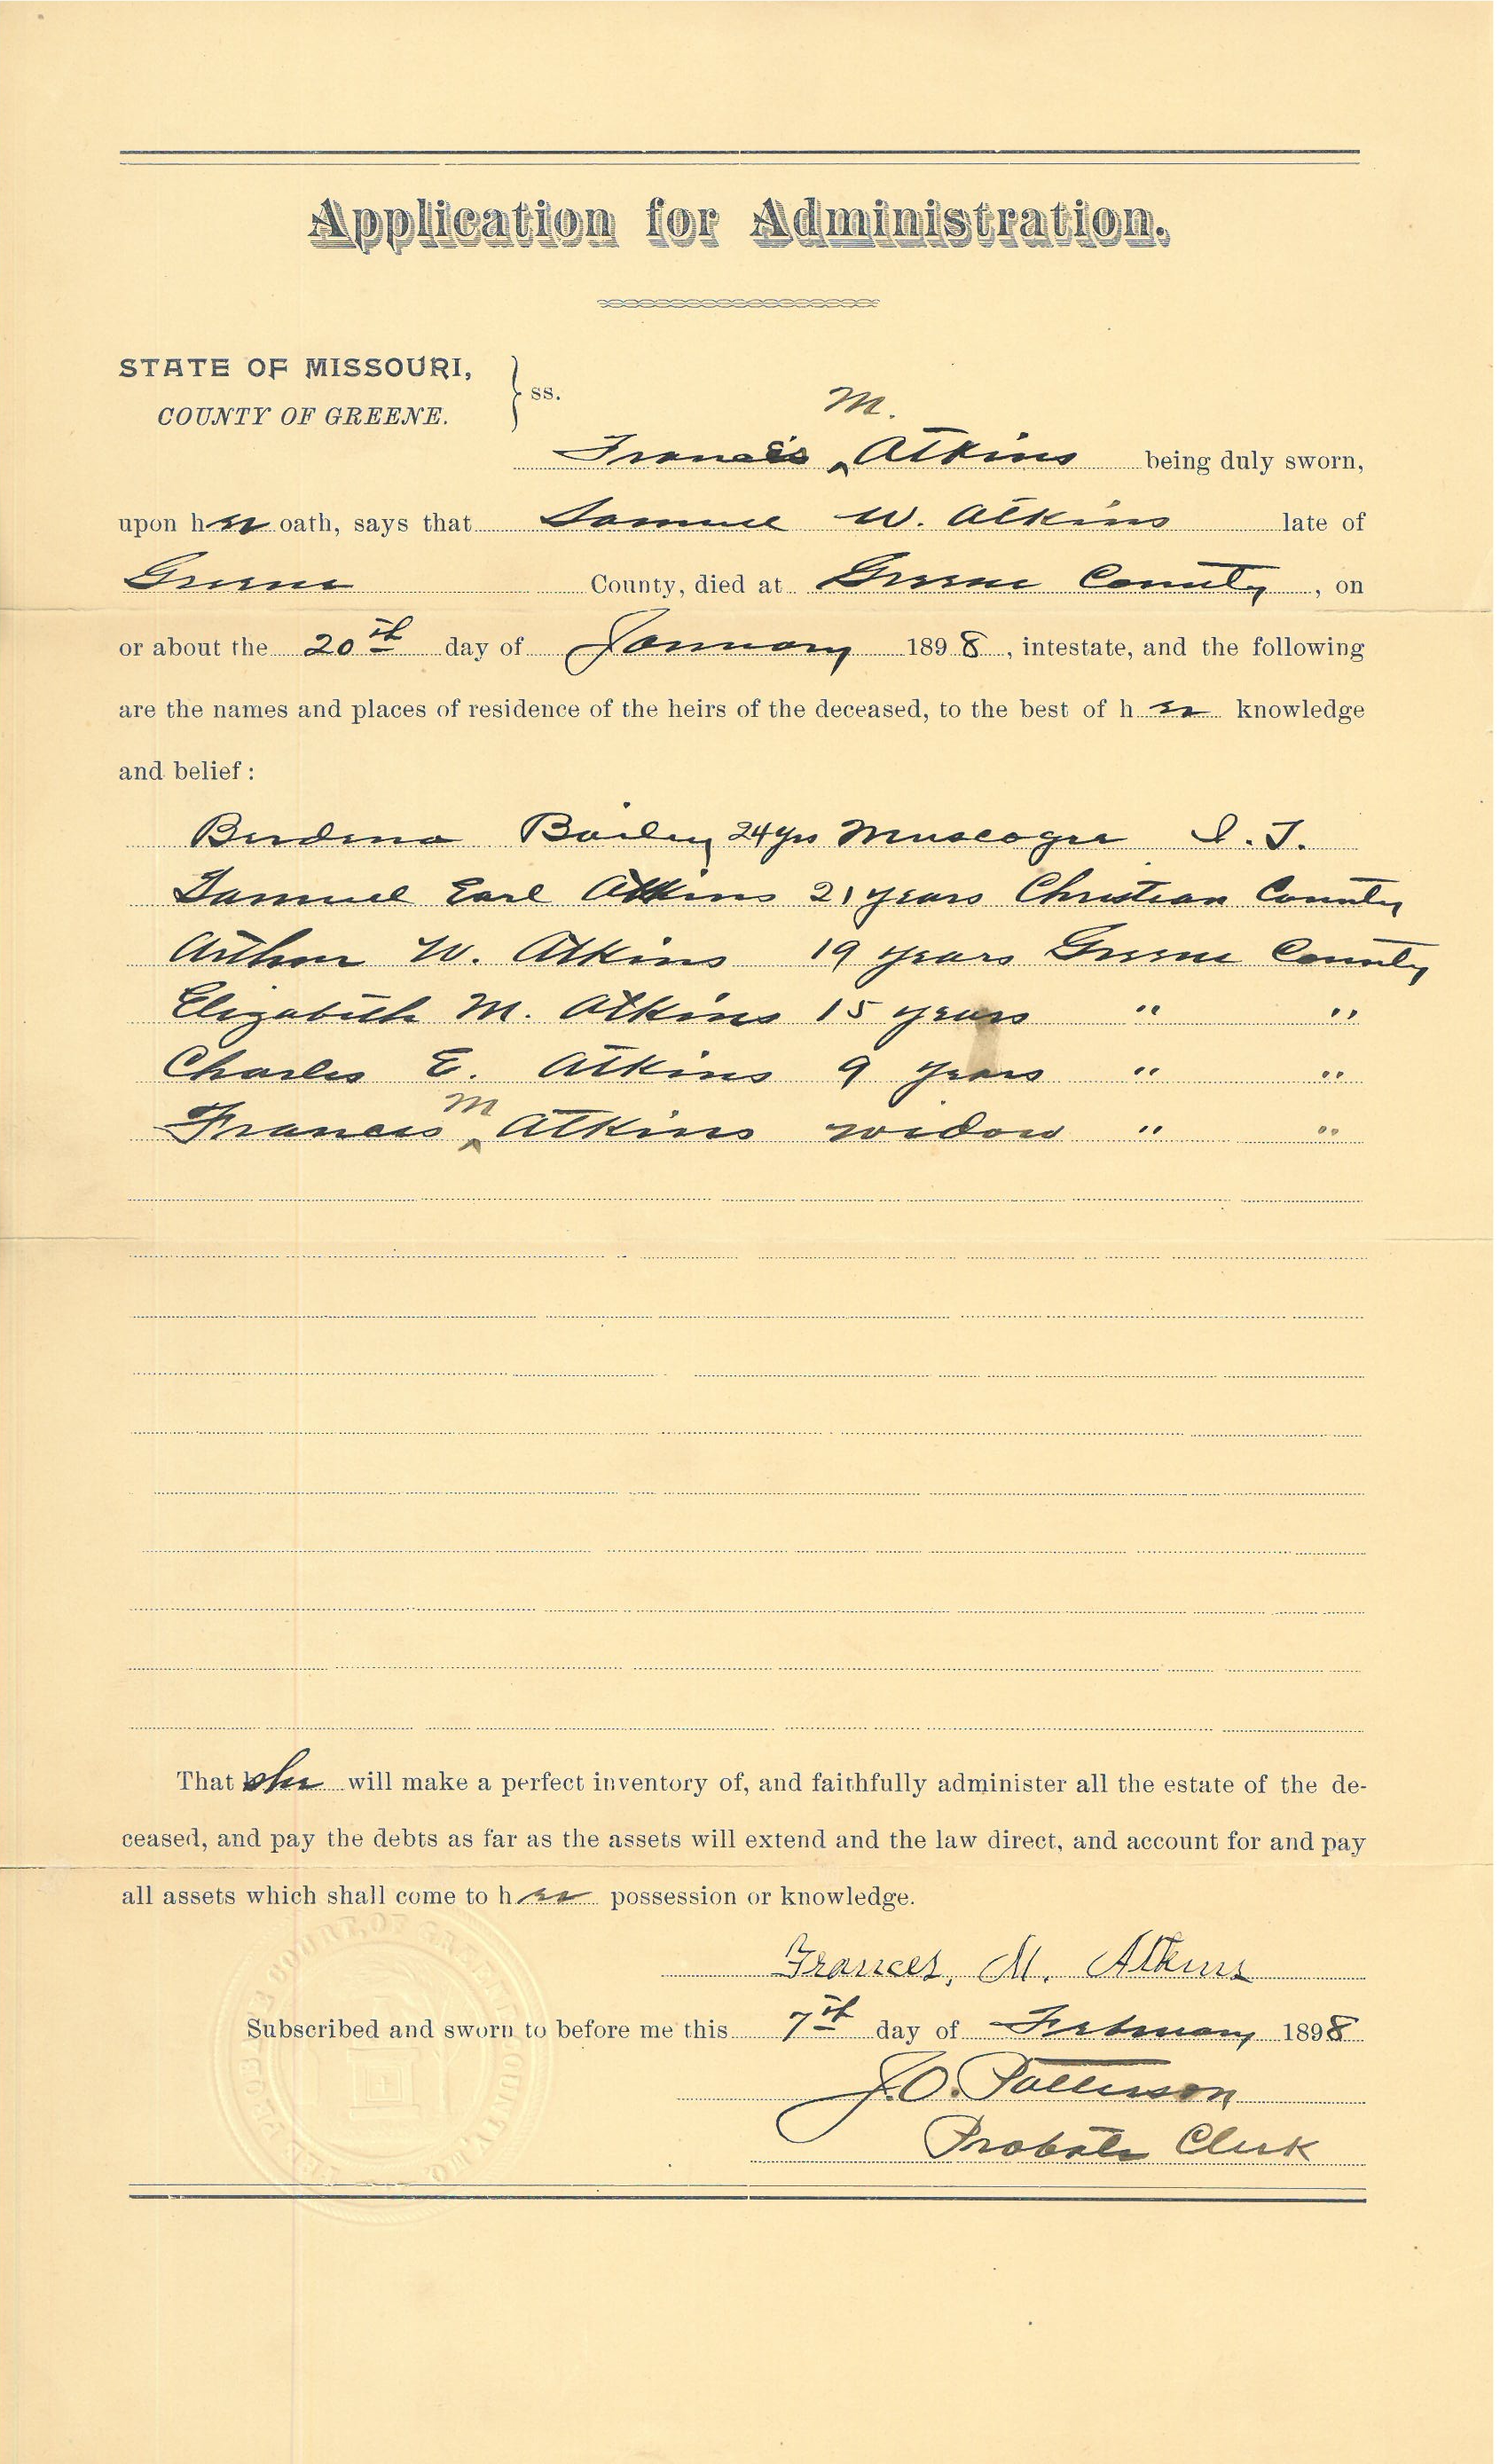 Application for Administration.
STATE OF MISSOURI,
COUNTY OF GREENE.
ss.
M.
Francis ‸ Atkins being duly sworn,
upon her oath, says that Samuel W. Atkins late of
Greene County, died at Greene County, on
or about the 20th day of January 1898, intestate, and the following
are the names and places of residence of the heirs of the deceased, to the best of her knowledge
and belief:
Berdena Bailey 24 yrs Muscogee I. T.
Samuel Earl Atkins 21 years Christian County
Arthur W. Atkins 19 years Greene County
Elizabeth M. Atkins 15 years " "
Charles E. Atkins 9 years " "
M
Frances ‸ Atkins widow " "
That she will make a perfect inventory of, and faithfully administer all the estate of the de-
ceased, and pay the debts as far as the assets will extend and the law direct, and account for and pay
all assets which shall come to her possession or knowledge.
Frances, M. Atkins
Subscribed and sworn to before me this 7th day of February 1898
J. O. Patterson
Probate Clerk